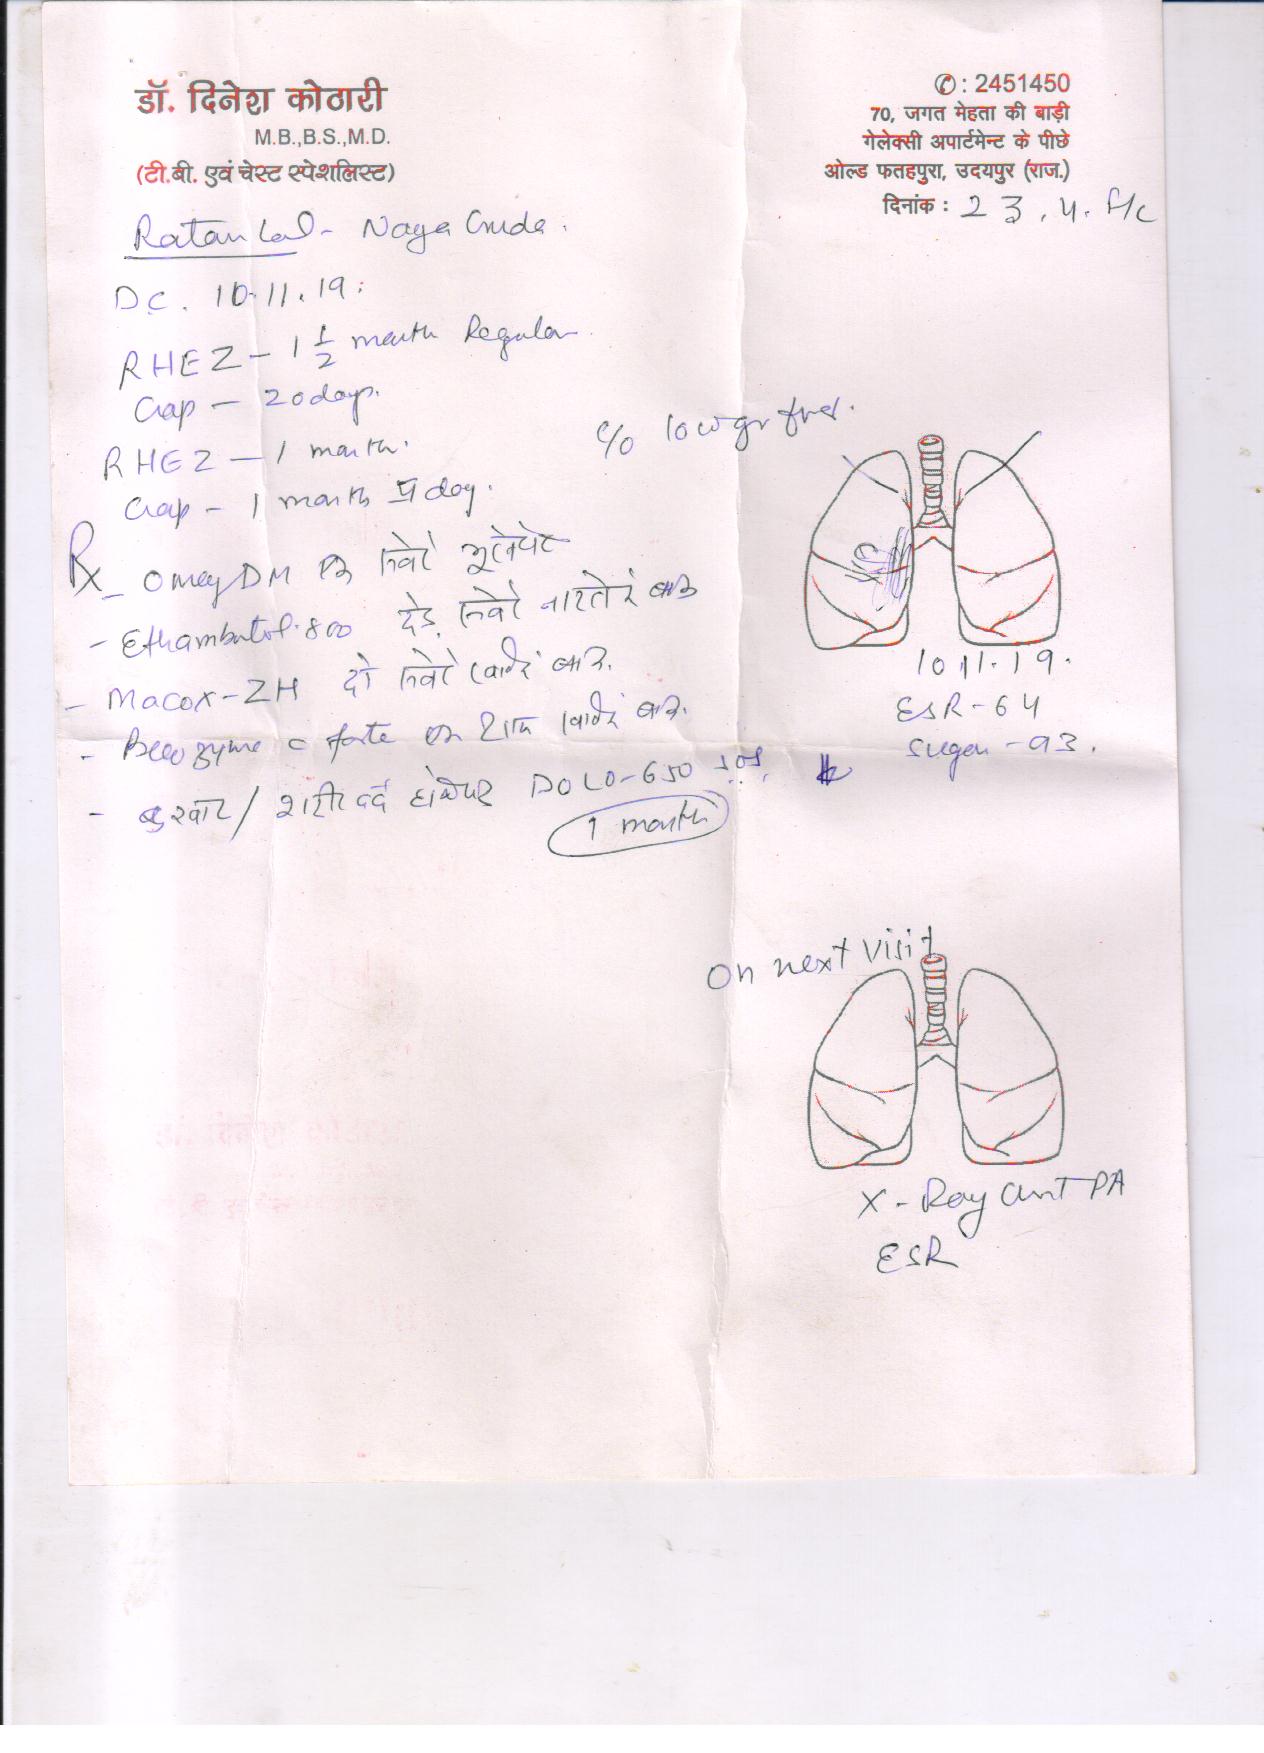 डॉ. दिनेश कोठारी
M.B.,B.S.,M.D.
(टी.बी. एवं चेस्ट स्पेशलिस्ट)
✆: 2451450
70, जगत मेहता की बाड़ी
गेलेक्सी अपार्टमेन्ट के पीछे
ओल्ड फतहपुरा, उदयपुर (राज.)
दिनांक : 23.4.
Ratan Lal - Naya Guda.
DC. 10.11.19.
RHEZ - 1 1/2 month Regular
Gap - 20 days.
RHEZ - 1 month.
Gap - 1 month day.
c/o low gr fever.
Rx
- Omez DM
- Ethambutol. 800 डेढ़ नाश्ते बाद
- Macox-ZH दो बाद.
- Becozyme C forte
- बुखार / शरीर दर्द होने पर DOLO-650 SOS.
1 month
10.11.19.
ESR - 64
Sugar - 93.
On next visit
X-Ray Chest PA
ESR